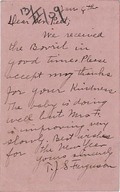 Jan 9th
Dear
We received
the Bovril in
good time. Please
accept my thanks
for your kindness
The baby is doing
well but Mrs F.
is improving very
slowly. Best wishes
for the New Year
Yours sincerely
T. J. S. Ferguson